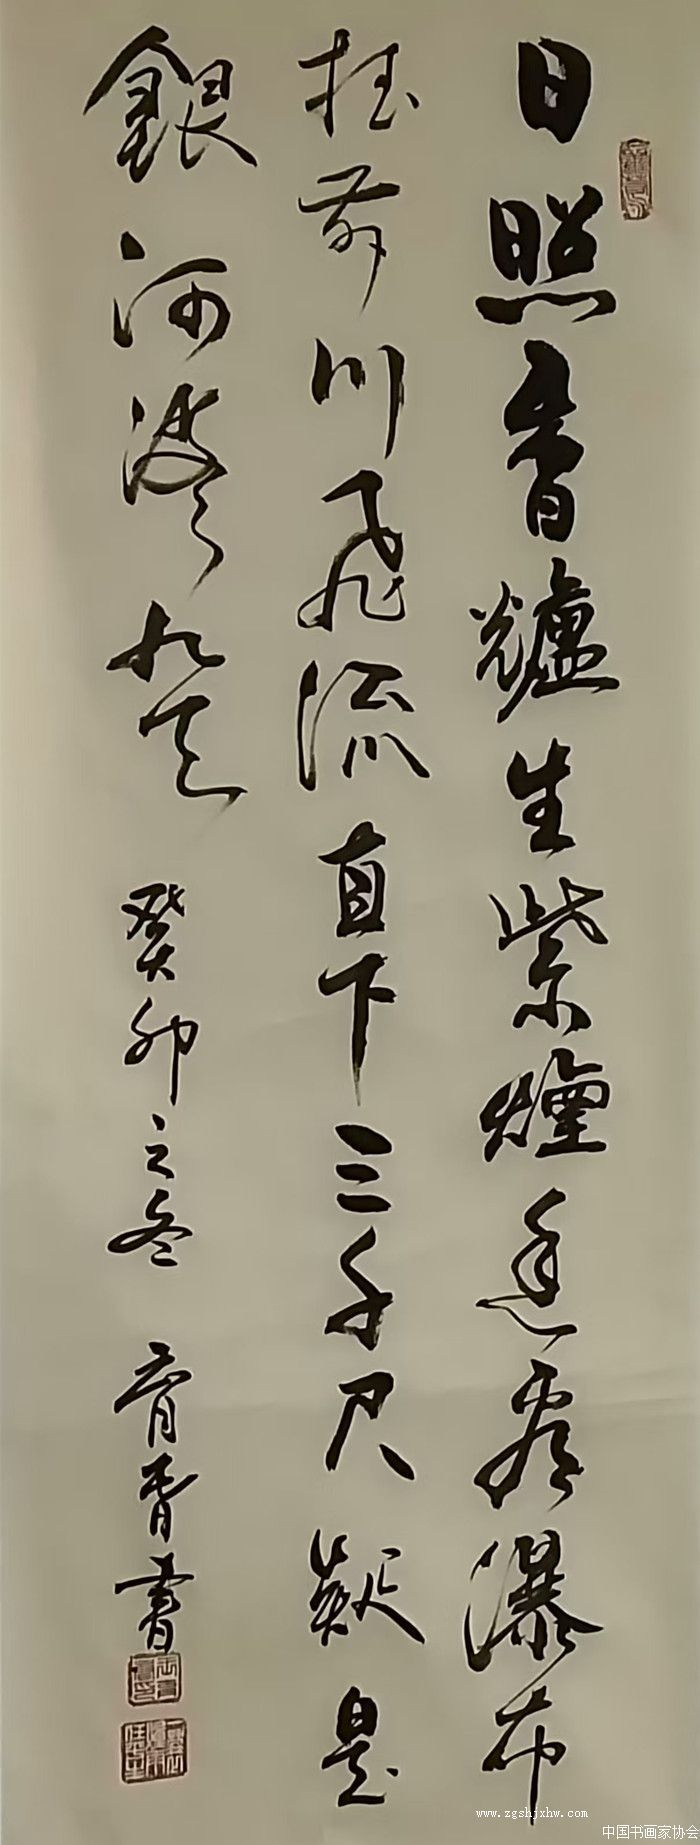 日照香爐生紫煙遥看瀑布
挂前川飛流直下三千尺疑是
銀河落九天 癸卯之冬 書
www.zgshjxhw.com
中国书画家协会